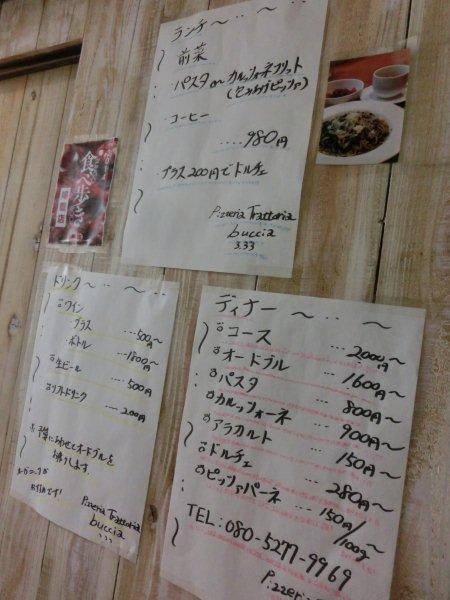 ランチ〜‥〜‥〜
前菜
パスタ or カルツォーネフリット
(セッ かげピッツァ)
コーヒー
....980円
プラス200円でドルチェ
Pizzeria Trattoria
buccia
3.33
食べ歩き
店
ドリンク〜‥〜‥〜
ワイン
グラス ...500円〜
ボトル ...1800円〜
生ビール .... 500円
ソフトドリンク ... 200円
予算にあわせてオードブルを
承ります
お得です!
Pizzeria Trattoria
buccia
3.33
ディナー〜‥〜
コース ... 2000円〜
オードブル .... 1600円〜
パスタ ... 800円〜
カルツォーネ ... 900円〜
アラカルト ... 150円〜
ドルチェ ... 280円〜
ピッツァパーネ ... 150円/100g〜
TEL:080-5277-9969
Pizzeri